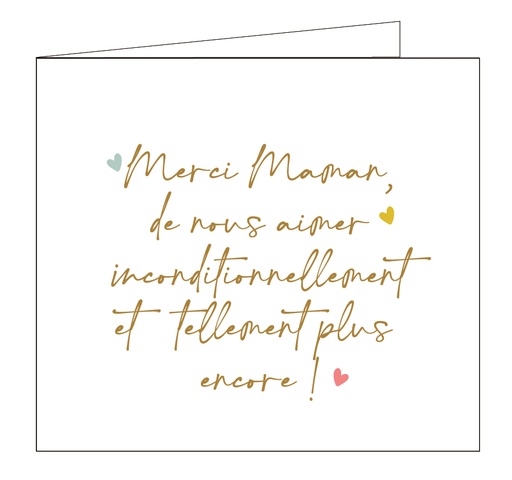 Merci Maman,
de nous aimer
inconditionnellement
et tellement plus
encore !